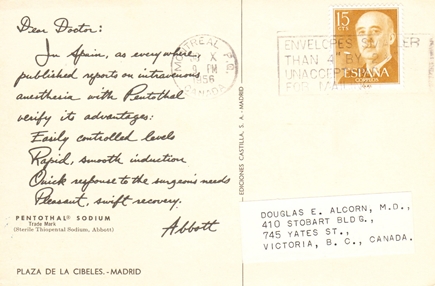 Dear Doctor:
In Spain, as everywhere,
published reports on intravenous
anesthesia with Pentothal
verify its advantages:
Easily controlled levels
Rapid, smooth induction
Quick response to the surgeon's needs
Pleasant, swift recovery.
Abbott
PENTOTHAL® SODIUM
Trade Mark
(Sterile Thiopental Sodium, Abbott)
PLAZA DE LA CIBELES.-MADRID
EDICIONES CASTILLA, S. A. - MADRID
MONTREAL P.Q.
X
PM
56
CANADA
ENVELOPES
THAN 4" BY
UNACCEP
FOR MA
15
CTS
ESPAÑA
CORREOS
DOUGLAS E. ALCORN, M.D.,
410 STOBART BLDG.,
745 YATES ST.,
VICTORIA, B. C., CANADA.